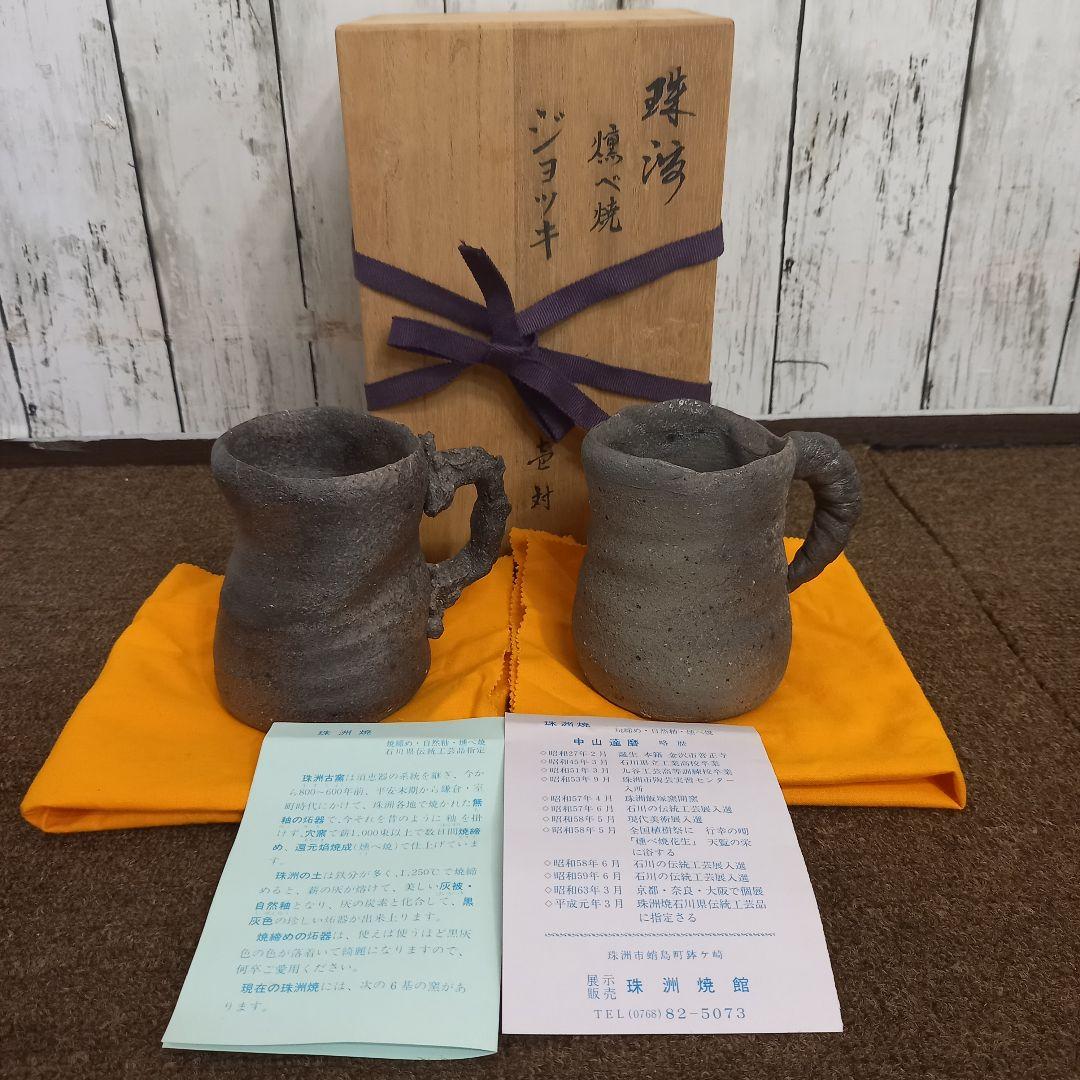 珠洲
燻べ焼
ジョッキ
壱対
珠洲焼
焼締め・自然釉・燻べ焼
石川県伝統工芸品指定
珠洲古窯は須恵器の系統を継ぎ、今か
ら800~600年前、平安末期から鎌倉・室
町時代にかけて、珠洲各地で焼かれた無
釉の炻器で、今それを昔のように釉を掛
けず、穴窯で薪1,000束以上で数日間焼締
め、還元焔焼成(燻べ焼)で仕上げていま
す。
珠洲の土は鉄分が多く、1,250℃で焼締
めると、薪の灰が熔けて、美しい灰被・
自然釉となり、灰の炭素と化合して、黒
灰色の珍しい炻器が出来上ります。
焼締めの炻器は、使えば使うほど黒灰
色の色が落着いて綺麗になりますので、
何卒ご愛用ください。
現在の珠洲焼には、次の6基の窯があ
ります。
珠洲焼
焼締め・自然釉・燻べ焼
中山達磨 略歴
◇昭和27年2月 誕生 本籍 金沢市菅正寺
◇昭和45年3月 石川県立工業高校卒業
◇昭和51年3月 九谷工芸高等訓練校卒業
◇昭和53年9月 珠洲市陶芸実習センター
入所
◇昭和57年4月 珠洲飯塚窯開窯
◇昭和57年6月 石川の伝統工芸展入選
◇昭和58年5月 現代美術展入選
◇昭和58年5月 全国植樹祭に 行幸の砌
「燻べ焼花生」 天覧の栄
に浴する
◇昭和58年6月 石川の伝統工芸展入選
◇昭和59年6月 石川の伝統工芸展入選
◇昭和63年3月 京都・奈良・大阪で個展
◇平成元年3月 珠洲焼石川県伝統工芸品
に指定さる
珠洲市蛸島町鉢ケ崎
展示
販売 珠洲焼館
TEL(0768)82-5073